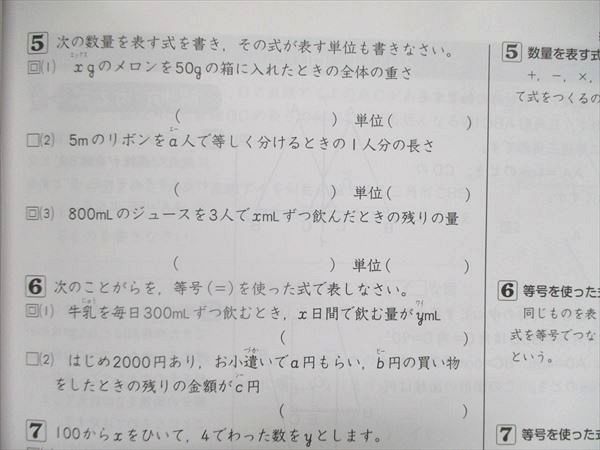 5 次の数量を表す式を書き，その式が表す単位も書きなさい。
(1) xgのメロンを50gの箱に入れたときの全体の重さ
エックス
( ) 単位( )
(2) 5mのリボンをa人で等しく分けるときの1人分の長さ
エー
( ) 単位( )
(3) 800mLのジュースを3人でxmLずつ飲んだときの残りの量
( ) 単位( )
6 次のことがらを，等号(=)を使った式で表しなさい。
(1) 牛乳を毎日300mLずつ飲むとき，x日間で飲む量がymL
ぎゅうにゅう
ワイ
( )
(2) はじめ2000円あり，お小遣いでa円もらい，b円の買い物
づか
ビー
をしたときの残りの金額がc円
シー
( )
7 100からxをひいて，4でわった数をyとします。
5 数量を表す式
+，-，×，
て式をつくるの
6 等号を使った式
同じものを表
式を等号でつな
という。
7 等号を使った式